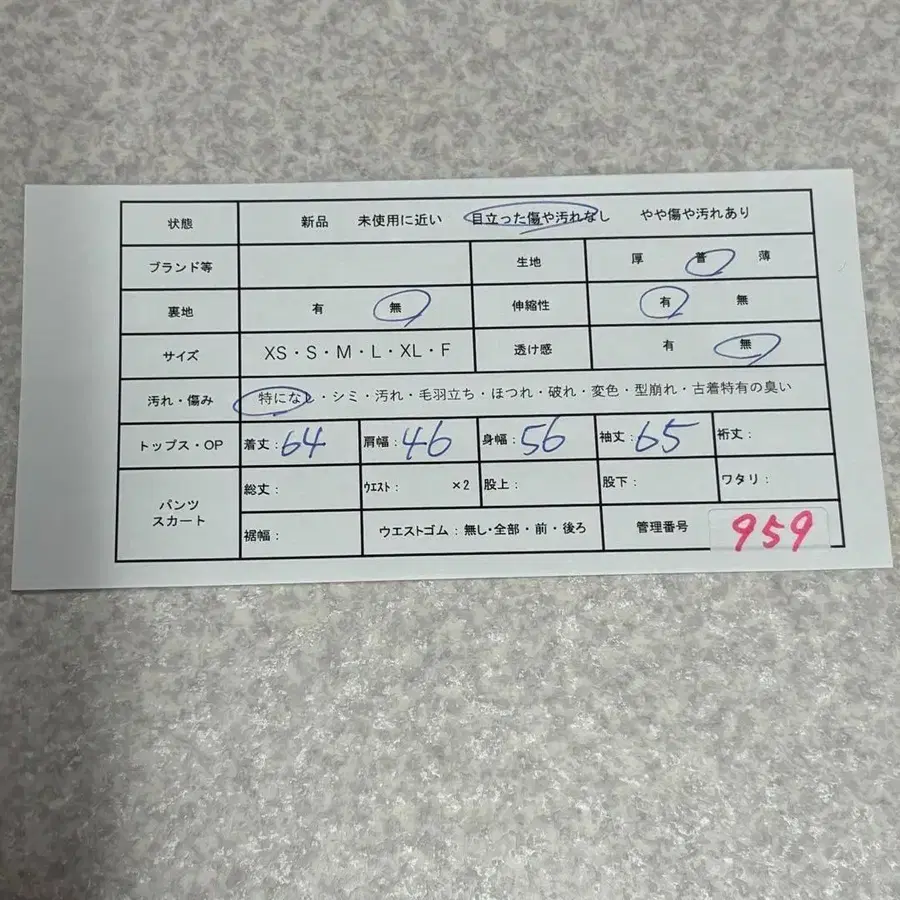 状態 新品 未使用に近い 目立った傷や汚れなし やや傷や汚れあり
ブランド等 生地 厚 普 薄
裏地 有 無 伸縮性 有 無
サイズ XS・S・M・L・XL・F 透け感 有 無
汚れ・傷み 特になし・シミ・汚れ・毛羽立ち・ほつれ・破れ・変色・型崩れ・古着特有の臭い
トップス・OP 着丈:64 肩幅:46 身幅:56 袖丈:65 裄丈:
パンツ
スカート
総丈: ウエスト: ×2 股上: 股下: ワタリ:
裾幅: ウエストゴム:無し・全部・前・後ろ 管理番号 959